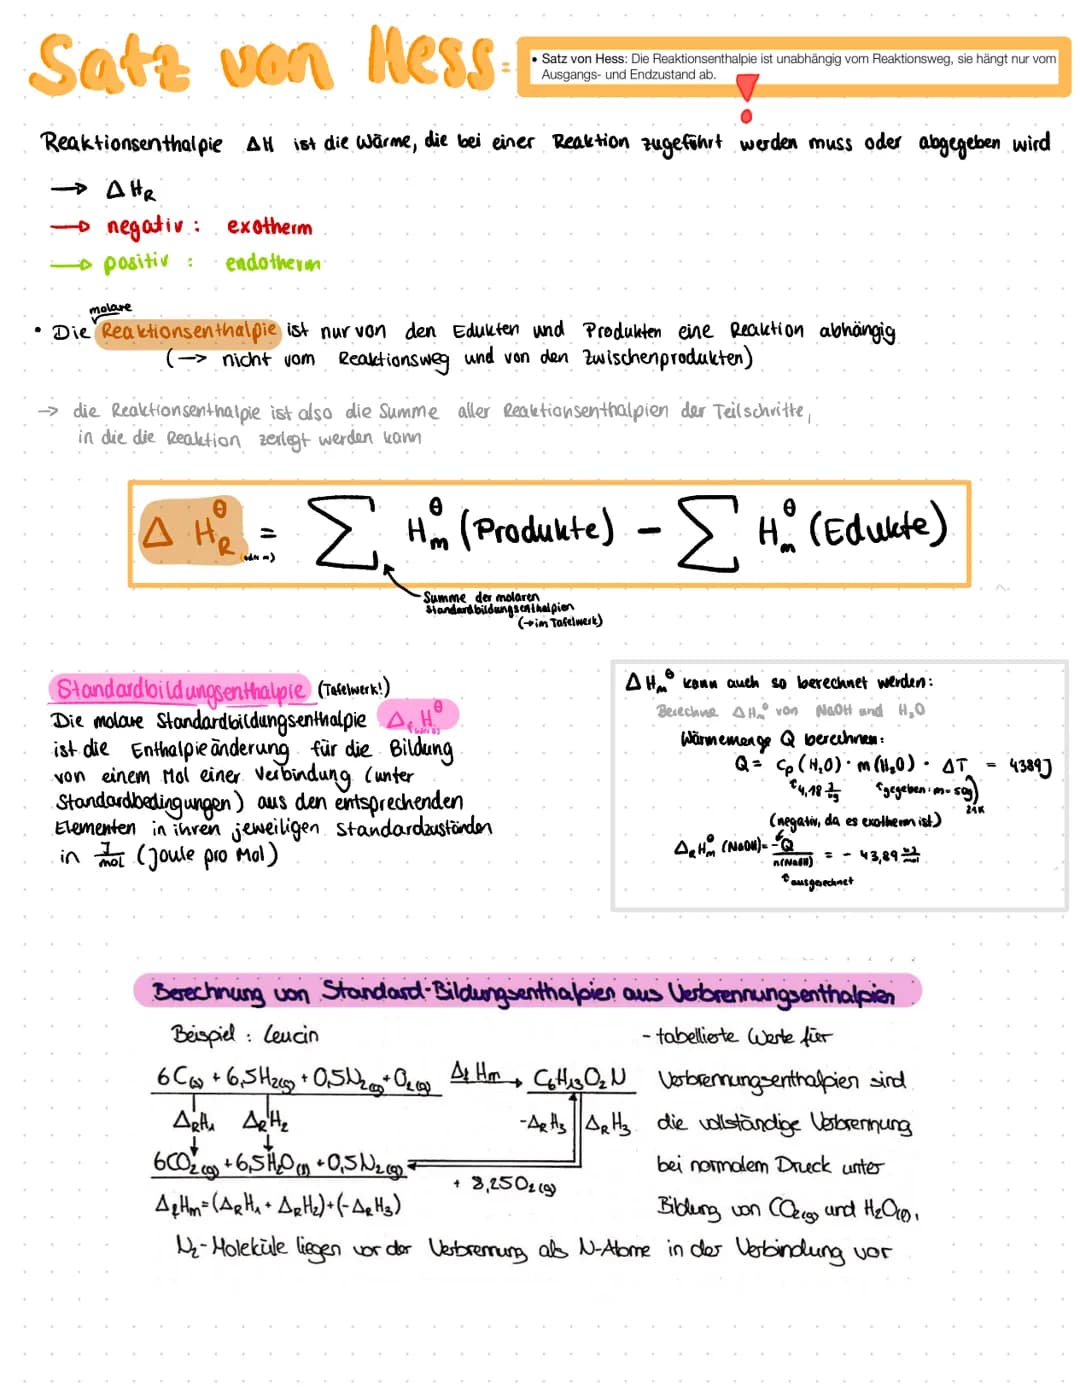 Satz von Hess:
• Satz von Hess: Die Reaktionsenthalpie ist unabhängig vom Reaktionsweg, sie hängt nur vom
Ausgangs- und Endzustand ab.
Reaktionsenthalpie ΔH ist die Wärme, die bei einer Reaktion zugeführt werden muss oder abgegeben wird
→ ΔH_R
→ negativ : exotherm
→ positiv : endotherm
molare
• Die Reaktionsenthalpie ist nur von den Edukten und Produkten eine Reaktion abhängig
(→ nicht vom Reaktionsweg und von den Zwischenprodukten)
→ die Reaktionsenthalpie ist also die Summe aller Reaktionsenthalpien der Teilschritte,
in die die Reaktion zerlegt werden kann
ΔH_R^θ = Σ H_m^θ (Produkte) - Σ H_m^θ (Edukte)
Summe der molaren
Standardbildungsenthalpien
(→ im Tafelwerk)
Standardbildungsenthalpie (Tafelwerk!)
Die molare Standardbildungsenthalpie Δ_f H^θ
ist die Enthalpieänderung für die Bildung
von einem Mol einer Verbindung (unter
Standardbedingungen) aus den entsprechenden
Elementen in ihren jeweiligen Standardzuständen
in J/mol (Joule pro Mol)
ΔH_m^θ kann auch so berechnet werden:
Berechne ΔH_m^θ von NaOH und H₂O
Wärmemenge Q berechnen:
Q = c_p (H₂O) · m(H₂O) · ΔT = 4389J
↑4,18 ↑gegeben: m = 50g) 21K
(negativ, da es exotherm ist)
Δ_R H_m^θ (NaOH) = -Q / n(NaOH) = - 43,89 kJ/mol
↑ ausgerechnet
Berechnung von Standard-Bildungsenthalpien aus Verbrennungsenthalpien
Beispiel : Leucin
6C(s) + 6,5H₂(g) + 0,5N₂(g) + O₂(g) Δ_f H_m → C₆H₁₃O₂N
Δ_R H₁ Δ_R H₂ -Δ_R H₃ Δ_R H₃
6CO₂(g) + 6,5H₂O(l) + 0,5N₂(g)
+ 8,25O₂(g)
Δ_f H_m = (Δ_R H₁ + Δ_R H₂) + (-Δ_R H₃)
- tabellierte Werte für
Verbrennungsenthalpien sind
die vollständige Verbrennung
bei normalem Druck unter
Bildung von CO₂(g) und H₂O(l),
N₂-Moleküle liegen vor der Verbrennung als N-Atome in der Verbindung vor